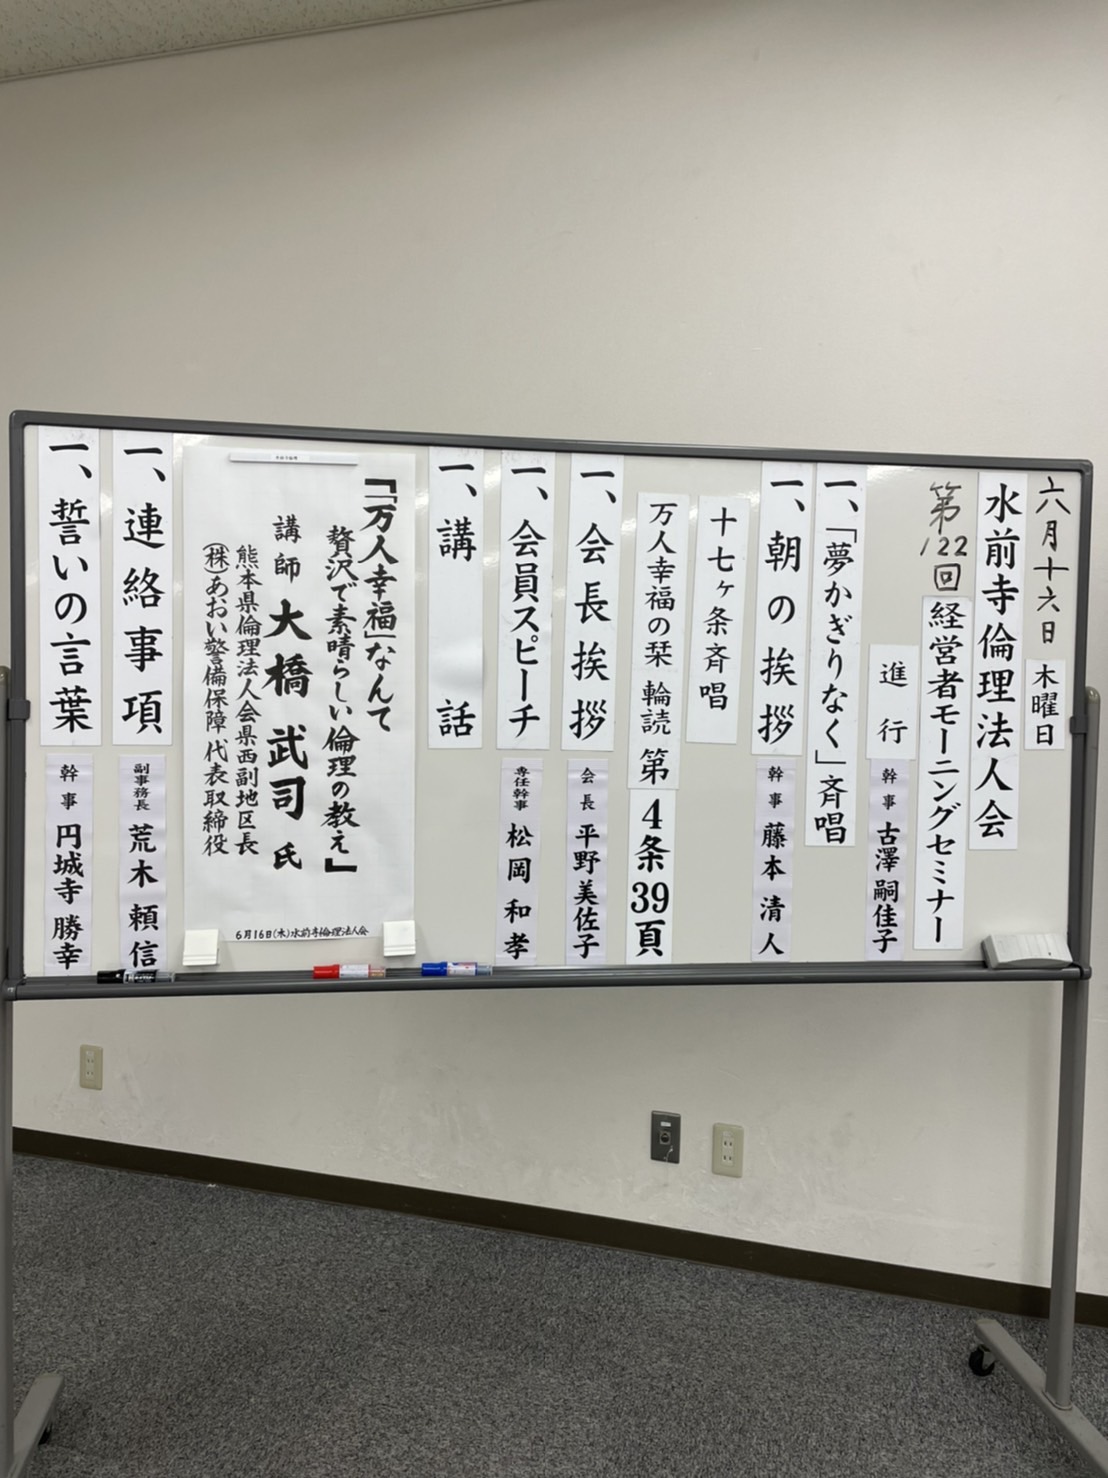 六月十六日 木曜日
水前寺倫理法人会
第122回 経営者モーニングセミナー
進行 幹事 古澤嗣佳子
一、「夢かぎりなく」斉唱
一、朝の挨拶 幹事 藤本清人
十七ヶ条斉唱
万人幸福の栞 輪読 第4条39頁
一、会長挨拶 会長 平野美佐子
一、会員スピーチ 専任幹事 松岡和孝
一、講話
『「万人幸福」なんて
贅沢で素晴らしい倫理の教え』
講師 大橋武司氏
熊本県倫理法人会県西副地区長
㈱あおい警備保障 代表取締役
6月16日(木)水前寺倫理法人会
一、連絡事項 副事務長 荒木頼信
一、誓いの言葉 幹事 円城寺勝幸